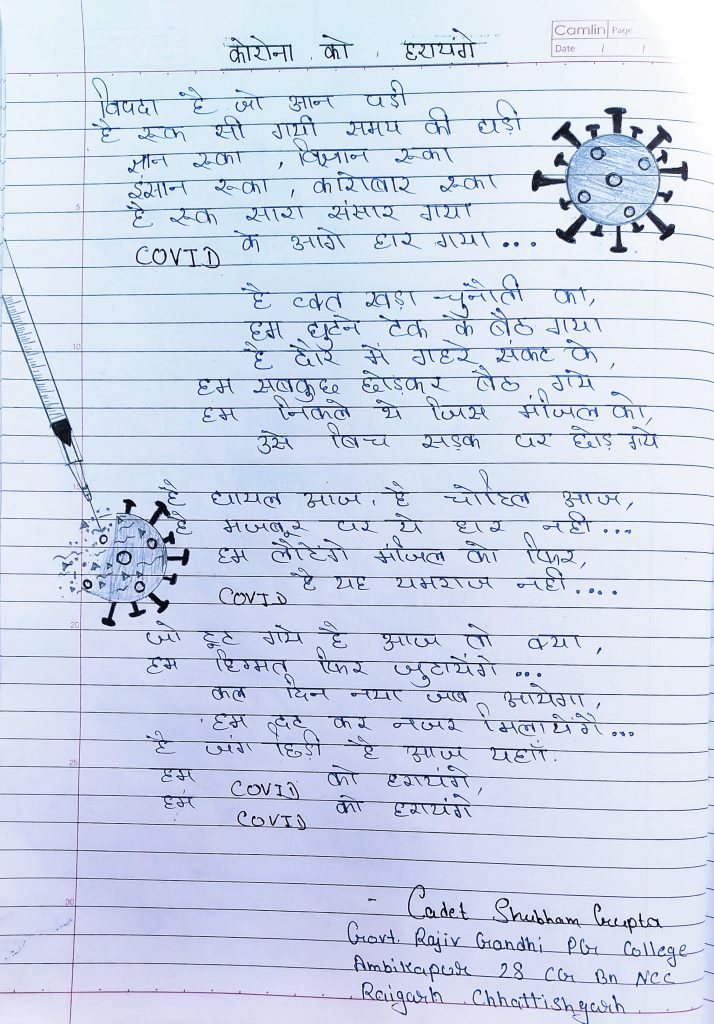 Camlin Page
Date / /
कोरोना को हरायंगे
विपदा है जो आन पडी
है रूक सी गयी समय की घड़ी
ज्ञान रूका , विज्ञान रूका
इंसान रूका , कारोबार रूका
है रूक सारा संसार गया
COVID के आगे हार गया...
है वक्त खड़ा चुनौती का,
हम घुटने टेक के बैठ गया
है दौर में गहरे संकट के,
हम सबकुछ छोड़कर बैठ गये
हम निकले थे जिस मंजिल को,
उसे बिच सड़क पर छोड़ गये
है घायल आज, है चोटिल आज,
है मजबूर पर ये हार नही...
हम लौटेंगे मंजिल को फिर,
COVID है यह यमराज नही....
जो टूट गये है आज तो क्या,
हम हिम्मत फिर जुटायेंगे...
कल दिन नया जब आयेगा,
हम डट कर नजर मिलायेंगे...
है जंग छिड़ी है आज यहाँ.
हम COVID को हरायंगे,
हम COVID को हरायंगे
- Cadet Shubham Gupta
Govt. Rajiv Gandhi PG College
Ambikapur 28 CG Bn NCC
Raigarh Chhattishgarh
5
10
15
20
25
30